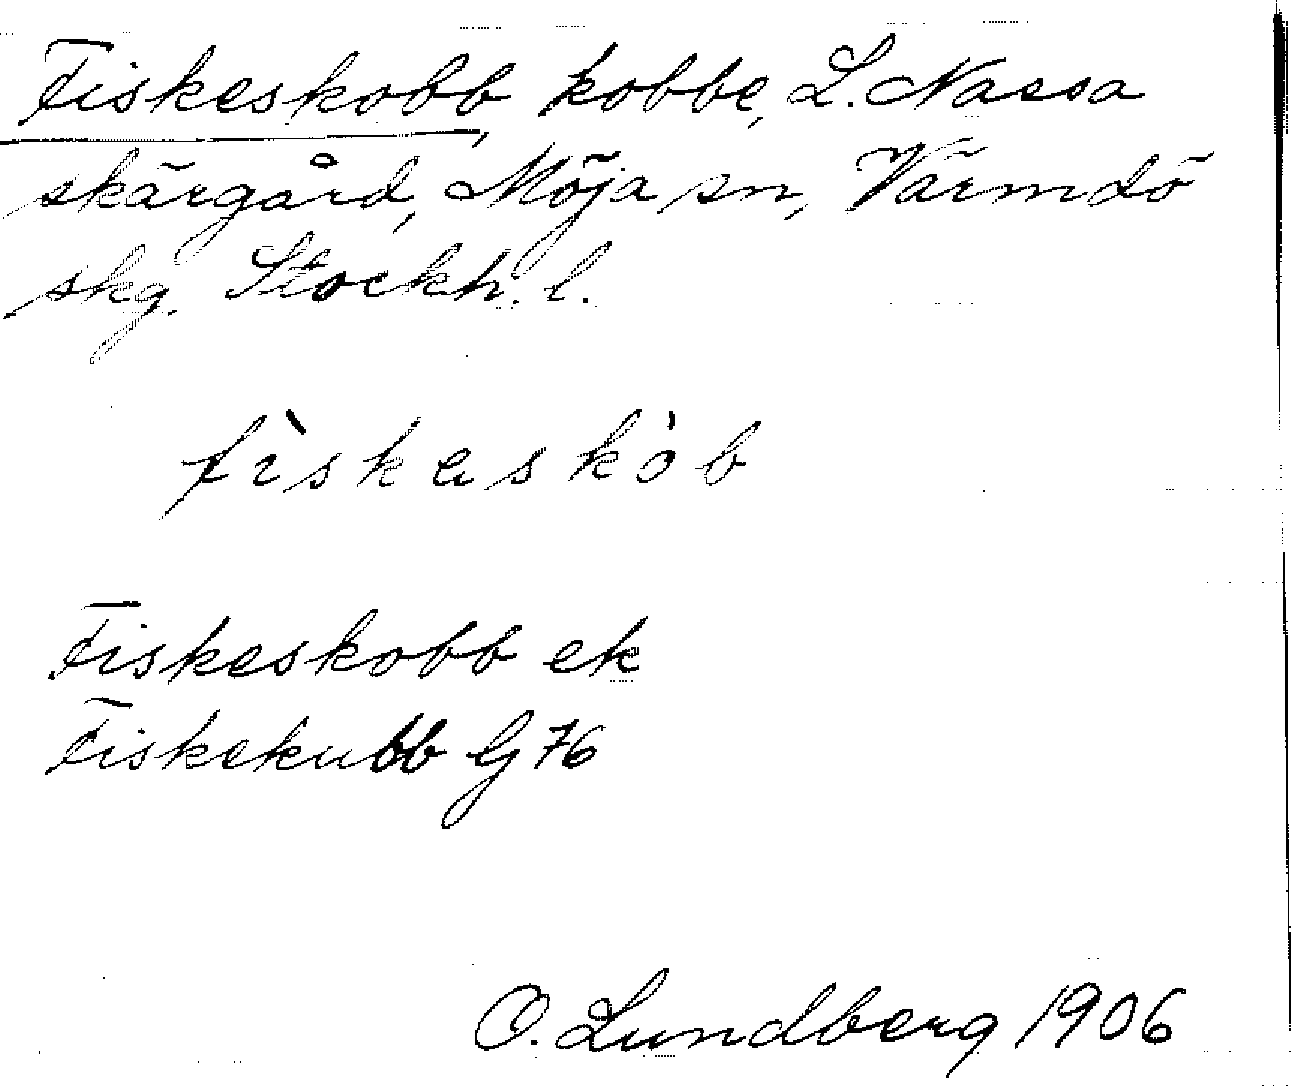 Fiskeskobb, kobbe, L. Nassa
skärgård, Möja sn, Värmdö
skg. Stockh. l.
fìskaskòb
Fiskeskobb ek
Fiskekubb G 76
O. Lundberg 1906